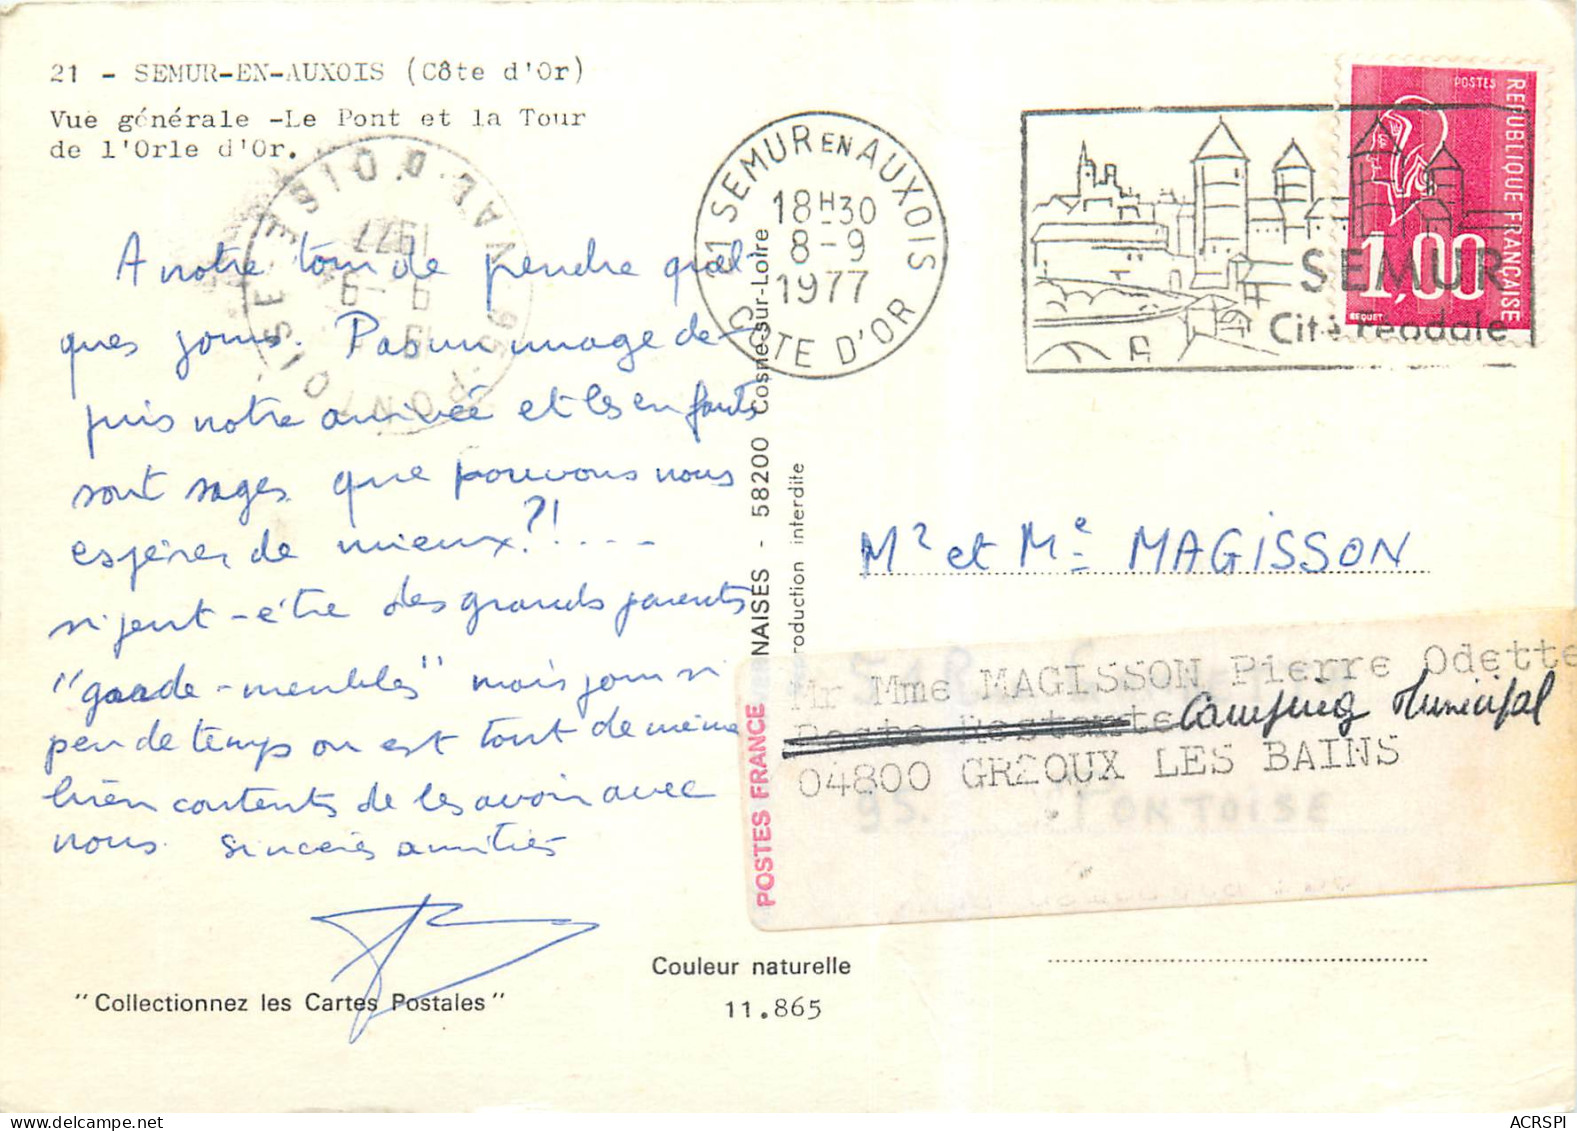 21 - SEMUR-EN-AUXOIS (Côte d'Or)
Vue générale -Le Pont et la Tour
de l'Orle d'Or.
A notre tour de prendre quel-
ques jours. Pas un nuage de-
puis notre arrivée et les enfants
sont sages que pouvons nous
espérer de mieux ?!....
ni peut-être des grands parents
"garde-meubles" mais pour si
peu de temps on est tout de même
bien contents de les avoir avec
nous. Sincères amitiés
"Collectionnez les Cartes Postales"
Couleur naturelle
11.865
95 - PONTOISE
VAL D'OISE
1977
21 SEMUR EN AUXOIS
18H30
8-9
1977
COTE D'OR
SEMUR
Cité féodale
POSTES
REPUBLIQUE FRANÇAISE
1,00
BEQUET
NAISES - 58200 Cosne-sur-Loire
roduction interdite
Mr et Me MAGISSON
Mr Mme MAGISSON Pierre Odette
Poste Restante Camping Municipal
04800 GREOUX LES BAINS
95. PONTOISE
POSTES FRANCE
ACRSPI